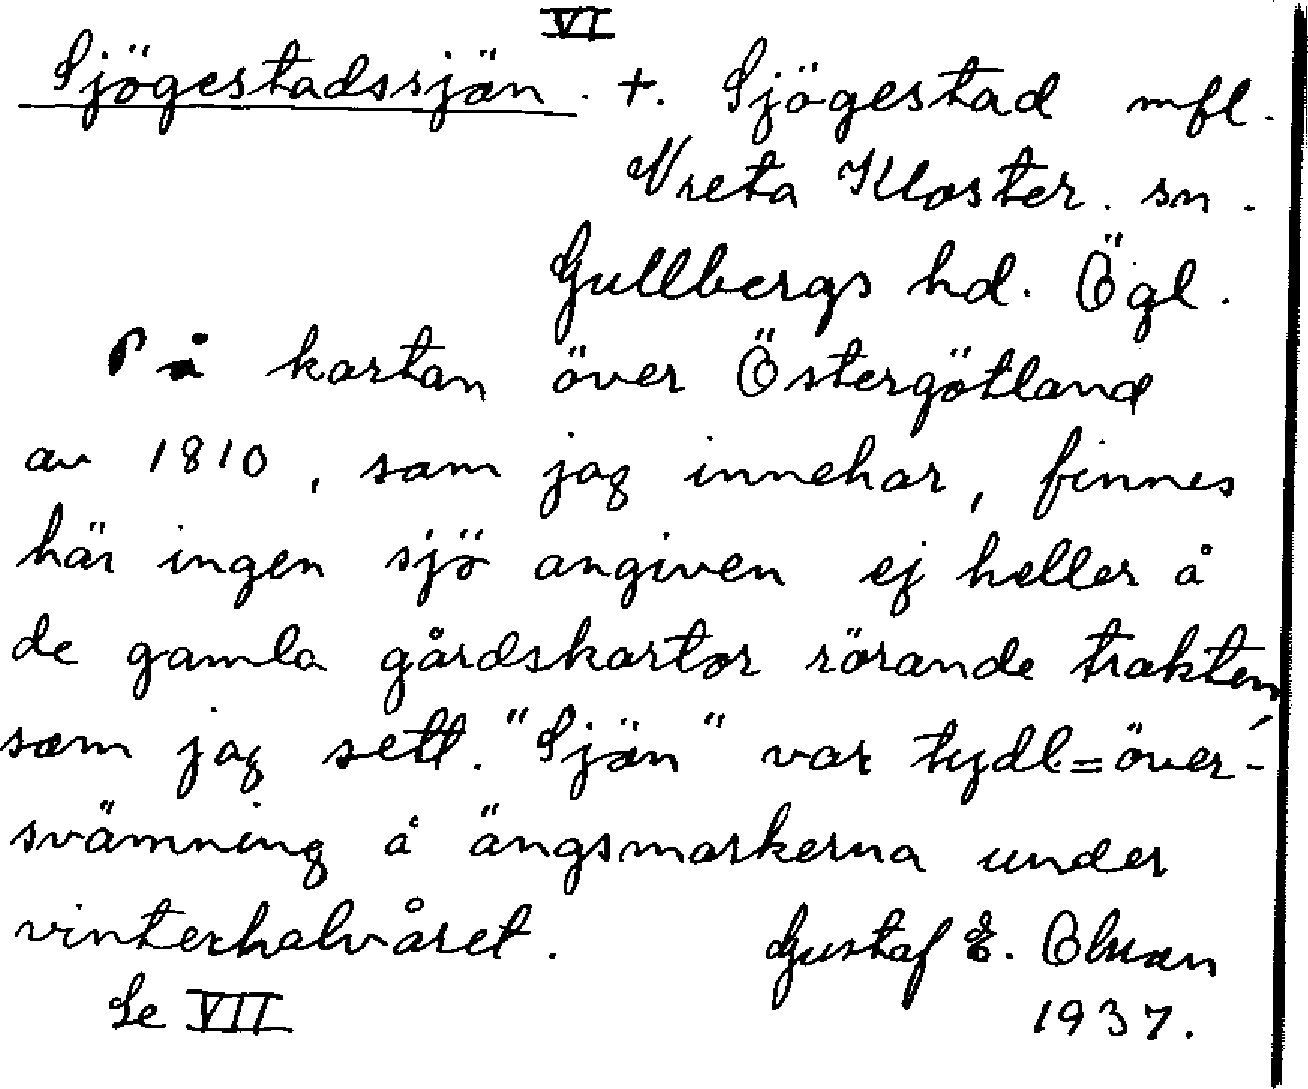 VI
Sjögestadssjön. +. Sjögestad mfl.
Vreta Kloster. sn.
Gullbergs hd. Ögl.
På kartan över Östergötland
av 1810, som jag innehar, finnes
här ingen sjö angiven ej heller å
de gamla gårdskartor rörande trakten
som jag sett. "Sjön" var tydl= över-
svämning å ängsmarkerna under
vinterhalvåret. Gustaf E.
Se VII 1937.